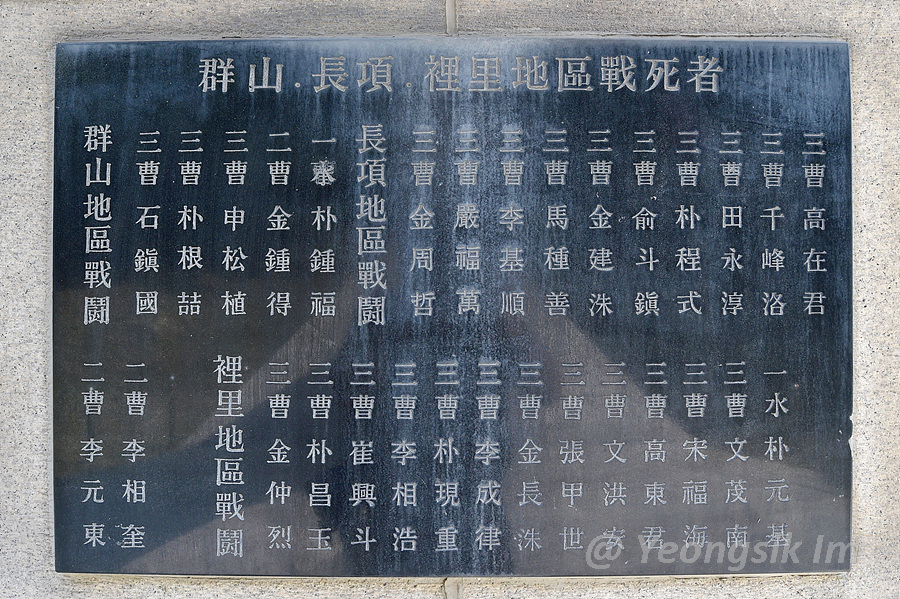 群山.長項.裡里地區戰死者
群山地區戰鬪
三曹 石鎭國
三曹 朴根喆
三曹 申松植
二曹 金鍾得
一 朴鍾福
長項地區戰鬪
三曹 金周哲
三曹 嚴福萬
三曹 李基順
三曹 馬種善
三曹 金建洙
三曹 兪斗鎭
三曹 朴程式
三曹 田永淳
三曹 千峰洛
三曹 高在君
二曹 李元東
二曹 李相奎
裡里地區戰鬪
三曹 金仲烈
三曹 朴昌玉
三曹 崔興斗
三曹 李相浩
三曹 朴現重
三曹 李成律
三曹 金長洙
三曹 張甲世
三曹 文洪
三曹 高東君
三曹 宋福海
三曹 文茂南
一水 朴元基
@ Yeongsik Im